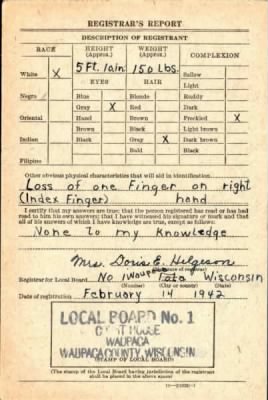 REGISTRAR'S REPORT
DESCRIPTION OF REGISTRANT
RACE HEIGHT (Approx.) WEIGHT (Approx.) COMPLEXION
White X 5 Ft. 10in. 150 Lbs. Sallow
EYES HAIR Light
Negro Blue Blonde Ruddy
Gray X Red Dark
Oriental Hazel Brown Freckled X
Brown Black Light brown
Indian Black Gray X Dark brown
Bald Black
Filipino
Other obvious physical characteristics that will aid in identification
Loss of one Finger on right
(Index Finger) hand
I certify that my answers are true; that the person registered has read or has had
read to him his own answers; that I have witnessed his signature or mark and that
all of his answers of which I have knowledge are true, except as follows:
None to my Knowledge
Mrs. Doris E. Helgeson
(Signature of registrar)
Registrar for Local Board No 1 Waupaca Wisconsin
(Number) (City or county) (State)
Date of registration February 14 1942
LOCAL BOARD No. 1
WAUPACA
WAUPACA COUNTY, WISCONSIN
(STAMP OF LOCAL BOARD)
(The stamp of the Local Board having jurisdiction of the registrant
shall be placed in the above space)